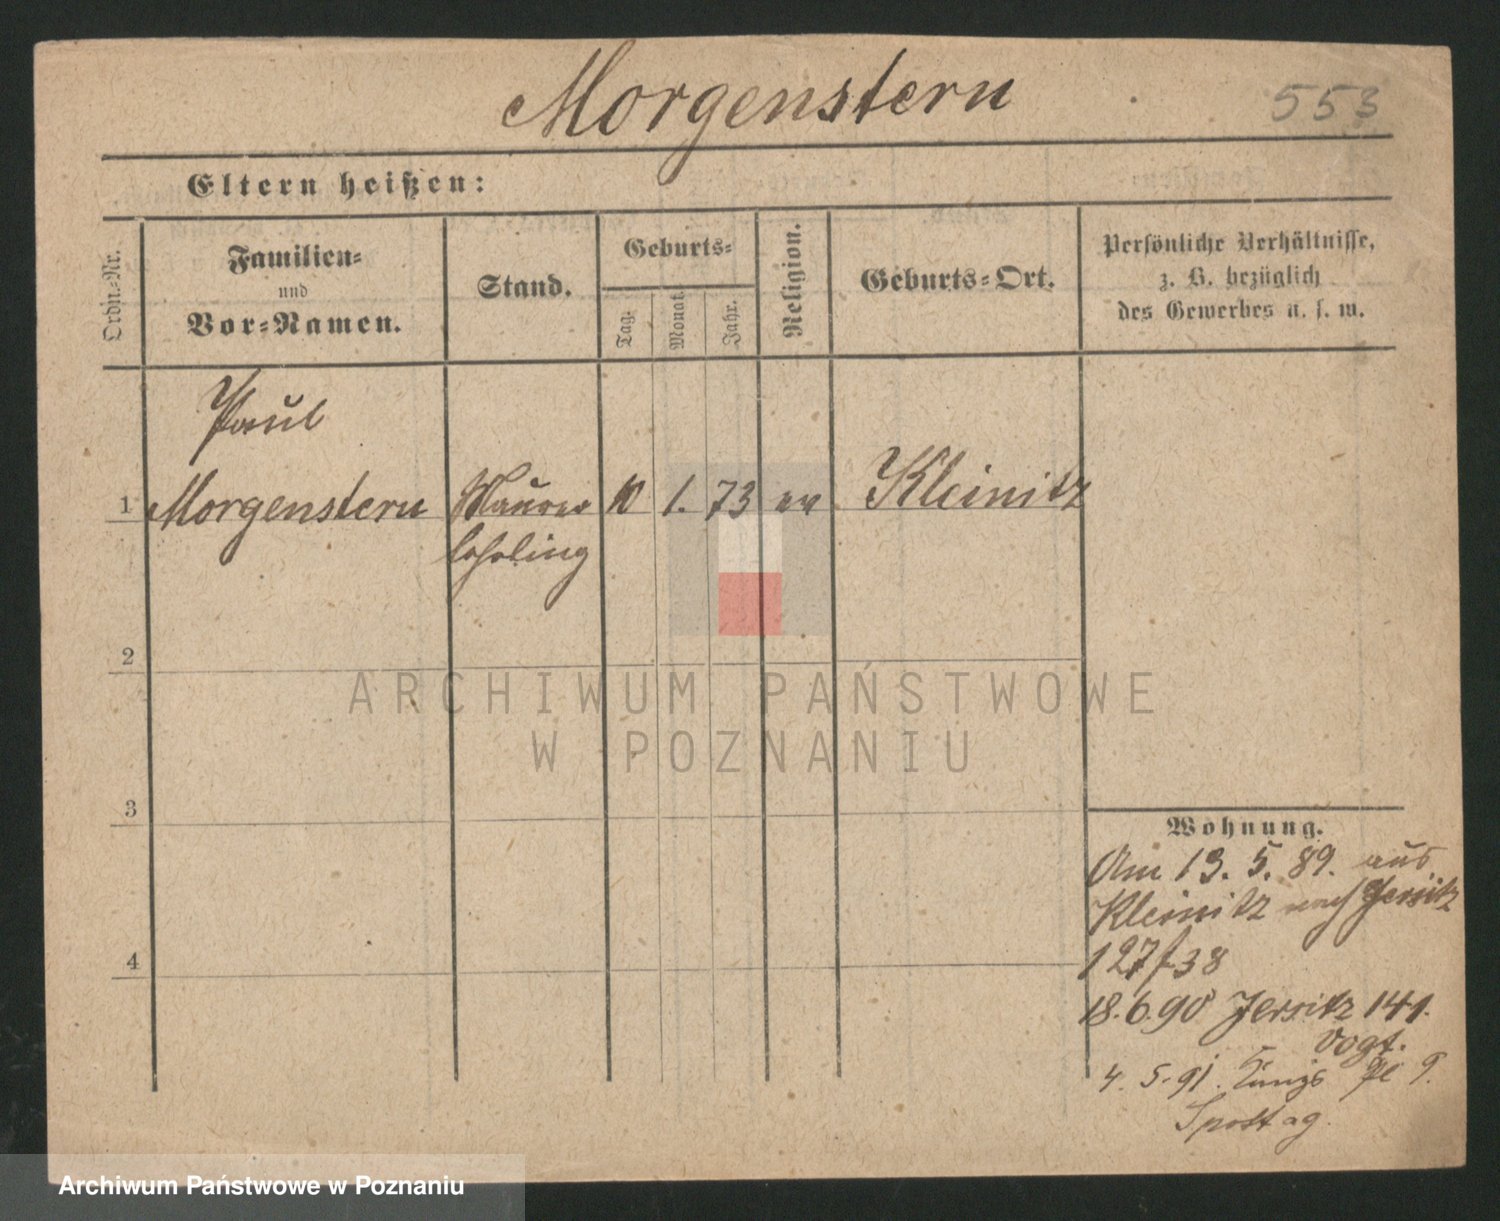 Morgenstern
553
Eltern heißen:
Ordn.-Nr.
Familien-
und
Vor-Namen.
Stand.
Geburts-
Tag.
Monat.
Jahr.
Religion.
Geburts-Ort.
Persönliche Verhältnisse,
z. B. bezüglich
des Gewerbes u. s. w.
Paul
1 Morgenstern Maurer 10 1. 73 ev Kleinitz
lehrling
2
3
4
Wohnung.
Am 13. 5. 89. aus
Kleinitz nach Jersitz
127 38
18.6.90 Jersitz 141.
Vogt.
4. 5. 91. Königs Pl 9.
ARCHIWUM PAŃSTWOWE
W POZNANIU
Archiwum Państwowe w Poznaniu